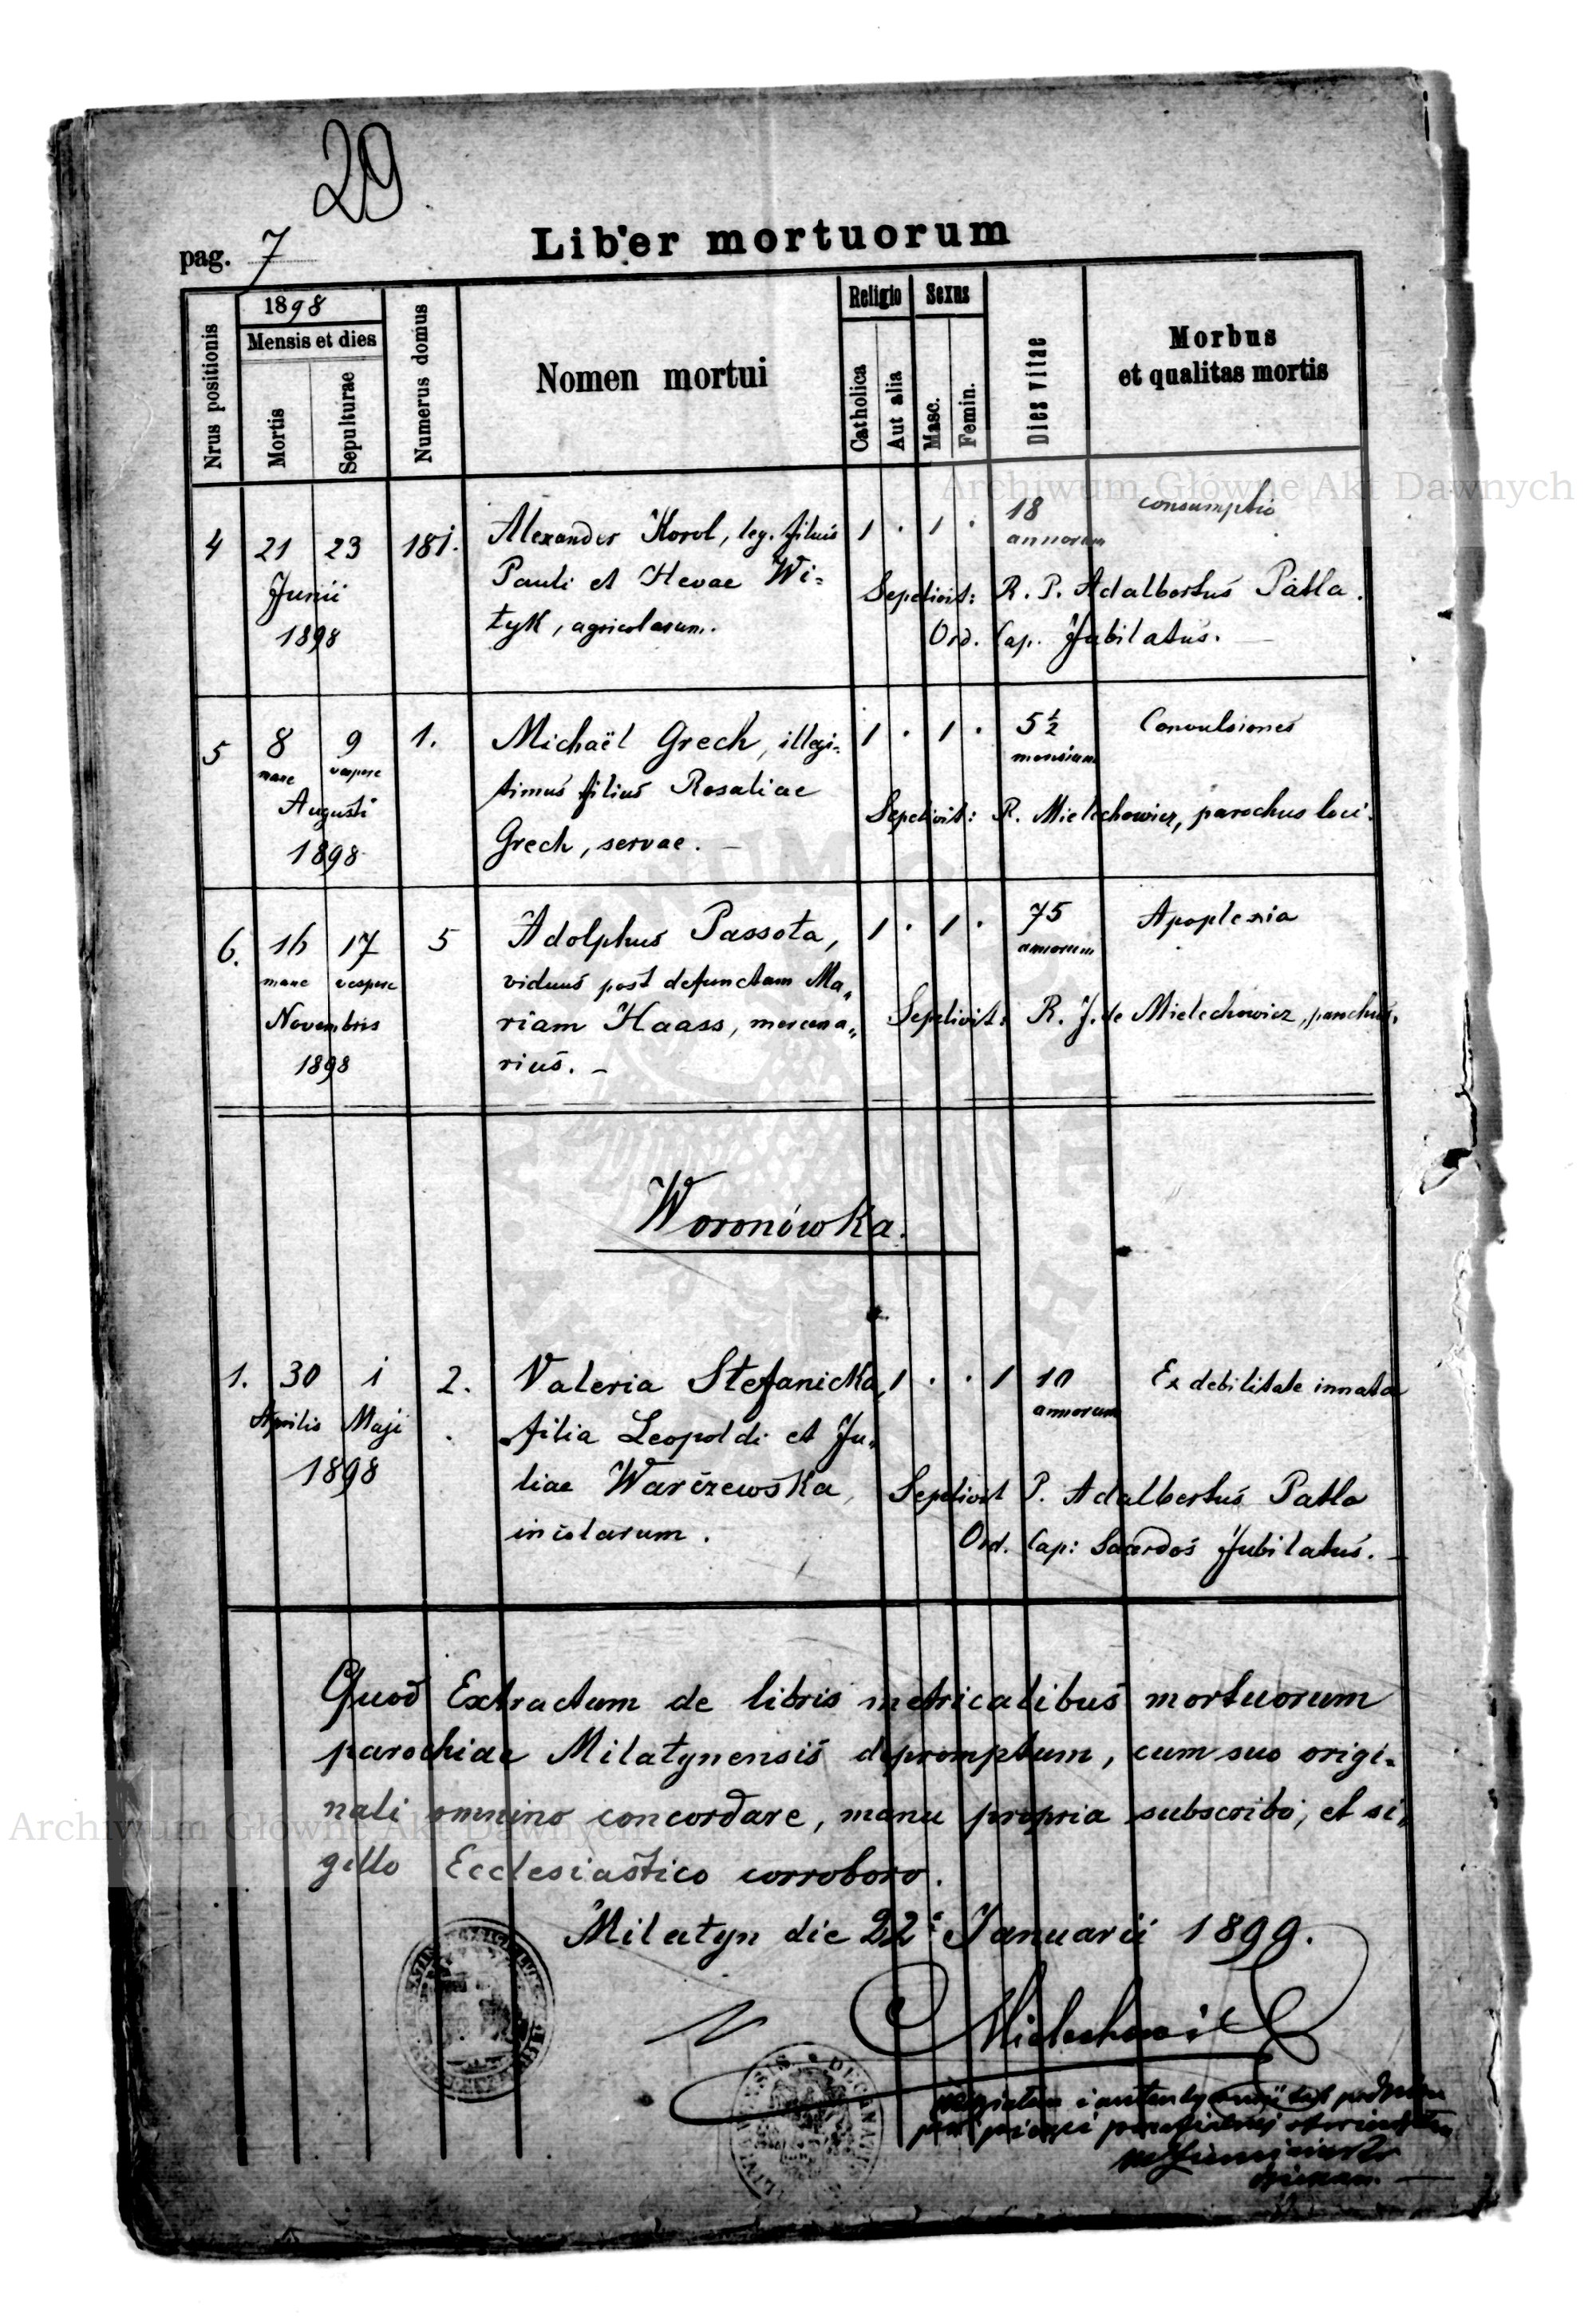 29
pag. 7
Liber mortuorum
Nrus positionis
1898
Mensis et dies
Mortis
Sepulturae
Numerus domus
Nomen mortui
Religio
Catholica
Aut alia
Sexus
Masc.
Femin.
Dies vitae
Morbus
et qualitas mortis
Archiwum Główne Akt Dawnych
4 21 23 181. Alexander Korol, leg. filius 1 . 1 . 18 consumptio
annorum
Junii Pauli et Hevae Wi= Sepelivit: R. P. Adalbertus Patla.
1898 tyk, agricolarum. Ord. Cap. Jubilatus.
5 8 9 1. Michaël Grech, illegi= 1 . 1 . 5½ Convulsiones
mane vespere mensium
Augusti timus filius Rosaliae Sepelivit: R. Mielechowicz, parochus loci.
1898 Grech, servae. –
6. 16 17 5 Adolphus Passota, 1 . 1 . 75 Apoplexia
mane vespere viduus post defunctam Ma„ annorum
Novembris riam Haass, mercena„ Sepelivit: R. J. de Mielechowicz, parochus.
1898 rius. –
Woronówka.
1. 30 1 2. Valeria Stefanicka, 1 . . 1 10 Ex debilitate innata
Aprilis Maji filia Leopoldi et Ju„ annorum
1898 liae Warczewska, Sepelivit P. Adalbertus Patla
incolarum. Ord. Cap: Sacerdos Jubilatus. –
Quod Extractum de libris metricalibus mortuorum
parochiae Milatynensis depromptum, cum suo origi=
nali omnino concordare, manu propria subscribo, et si„
Archiwum Główne Akt Dawnych
gillo Ecclesiastico corroboro.
Milatyn die 22 Januarii 1899.
Mielechowicz